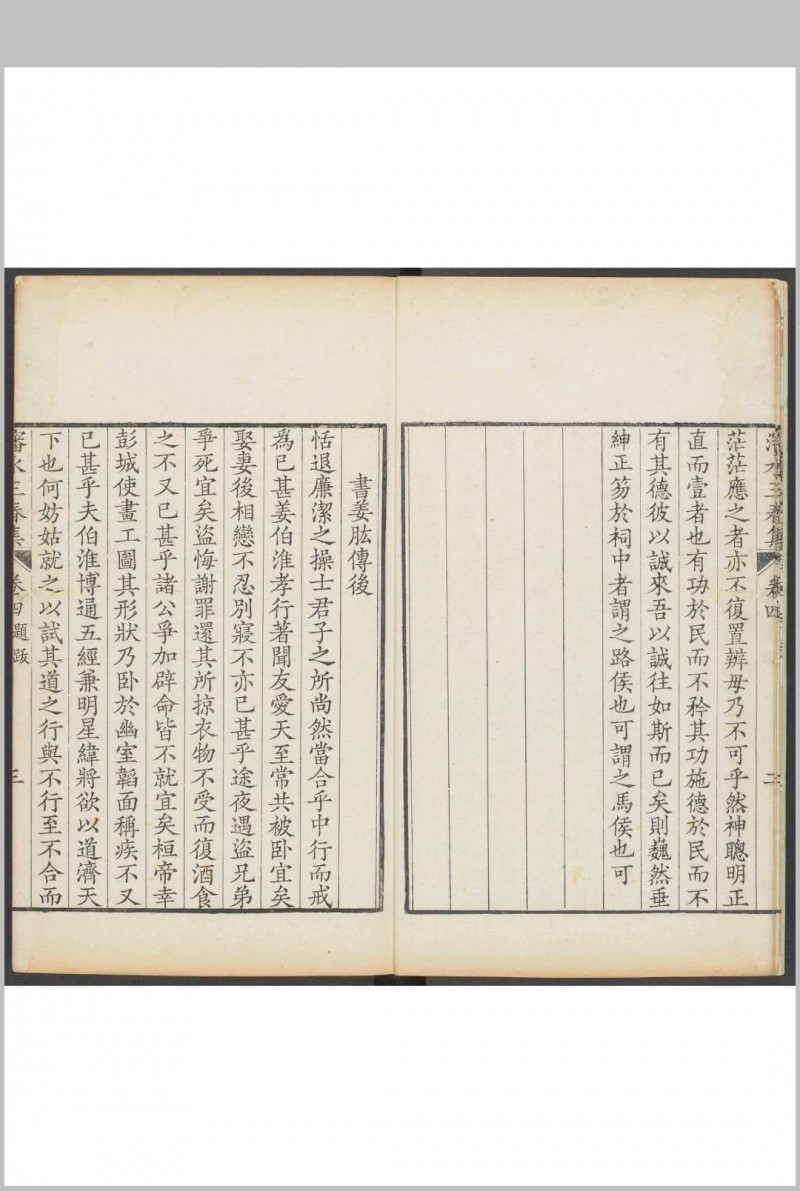 水三春集 卷四 二
茫茫應之者亦不復置辨毋乃不可乎然神聰明正
直而壹者也有功於民而不矜其功施德於民而不
有其德彼以誠來吾以誠往如斯而已矣則巍然垂
紳正笏於祠中者謂之路侯也可謂之馬侯也可
書姜肱傳後
恬退廉潔之操士君子之所尚然當合乎中行而戒
爲已甚姜伯淮孝行著聞友愛天至常共被卧宜矣
娶妻後相戀不忍別寢不亦已甚乎途夜遇盜兄弟
爭死宜矣盜悔謝罪還其所掠衣物不受而復酒食
之不又已甚乎諸公爭加辟命皆不就宜矣桓帝幸
彭城使畫工圖其形狀乃卧於幽室韜面稱疾不又
已甚乎夫伯淮博通五經兼明星緯將欲以道濟天
下也何妨姑就之以試其道之行與不行至不合而
水三春集 卷四 題跋 三